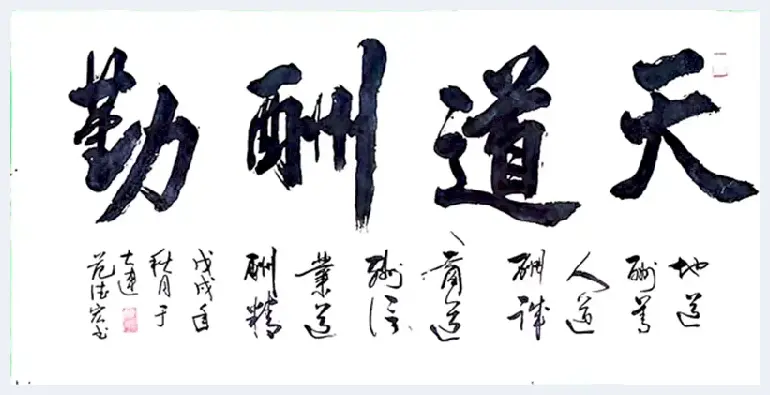 天道酬勤
地道
酬善
人道
酬诚
商道
酬信
業道
酬精
戊戌年
秋月于
大连
范宏书